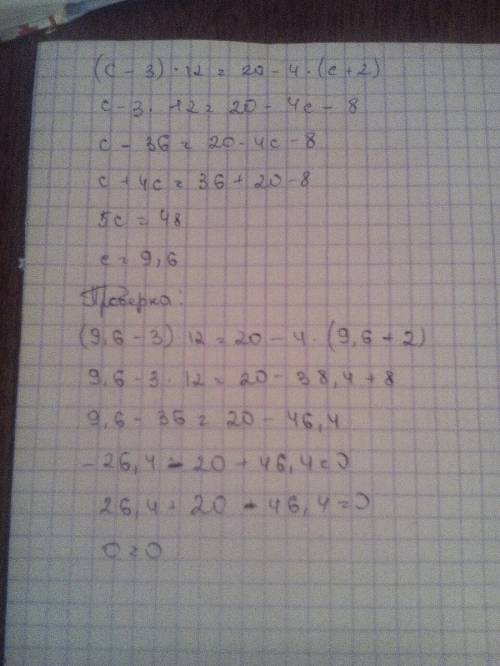 (с - 3) · 12 = 20 - 4 · (с + 2)
с - 3 · 12 = 20 - 4с - 8
с - 36 = 20 - 4с - 8
с + 4с = 36 + 20 - 8
5с = 48
с = 9,6
Проверка:
(9,6 - 3) 12 = 20 - 4 · (9,6 + 2)
9,6 - 3 · 12 = 20 - 38,4 + 8
9,6 - 36 = 20 - 46,4
- 26,4 - 20 + 46,4 = 0
26,4 + 20 - 46,4 = 0
0 = 0